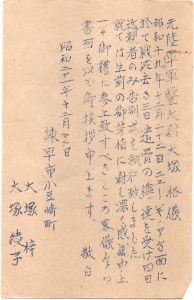 元陸軍軍医大尉大塚格儀
昭和十九年十二月二十三日ニューギニア方面に
於て戦死去る三日遺骨の伝達を受け四日
近親者のみ告別式を執行致しました
就ては生前の御芳情に対し深く感謝申上
一々御礼に参上致すべきところ略儀ながら
書面を以て御挨拶申上ます 敬白
昭和二十一年十二月 日
諫早市小豆崎町
大塚梓
大塚綾子